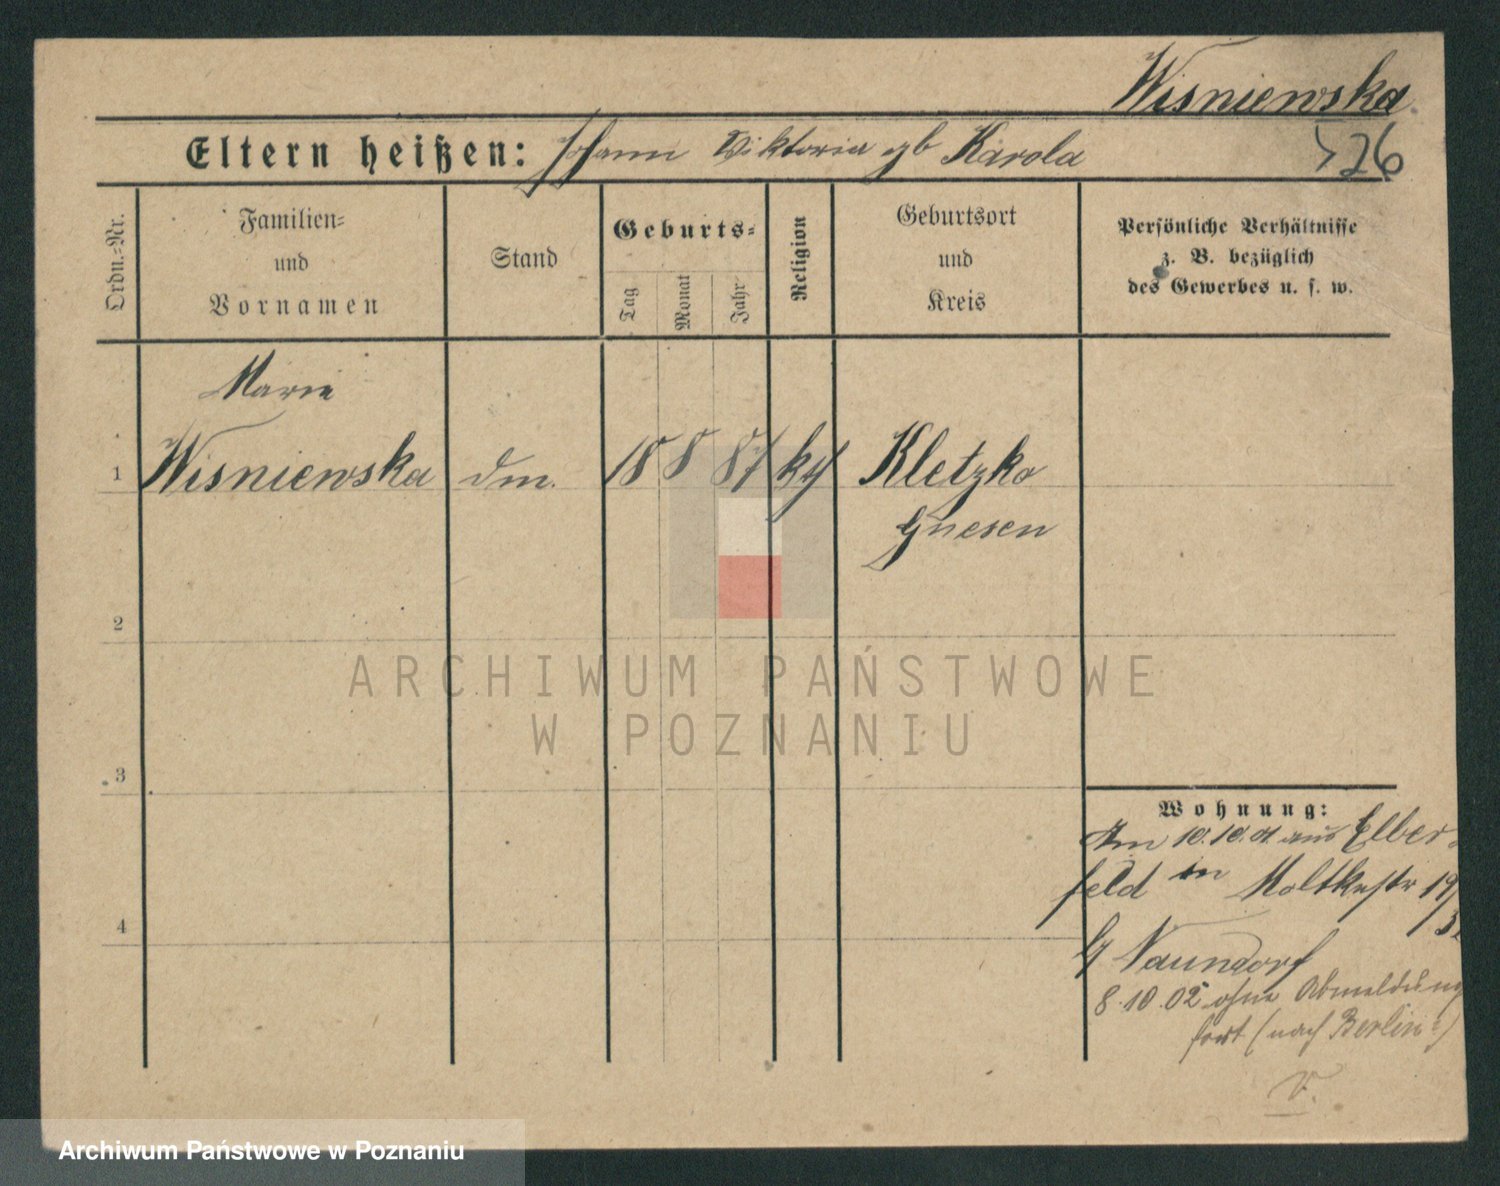 Wisniewska
526
Eltern heißen: Johann Viktoria gb Karola
Ordn.-Nr.
Familien-
und
Vornamen
Stand
Geburts-
Tag
Monat
Jahr
Religion
Geburtsort
und
Kreis
Persönliche Verhältnisse
z. B. bezüglich
des Gewerbes u. s. w.
Marie
1 Wisniewska dm. 18 8 81 kth Kletzko
Gnesen
2
3
4
ARCHIWUM PAŃSTWOWE
W POZNANIU
Wohnung:
Am 10.10.01 aus Elber-
feld in Moltkestr 19/
32
b/ Naundorf
8.10.02 ohne Abmeldung
fort (nach Berlin?)
V.
Archiwum Państwowe w Poznaniu